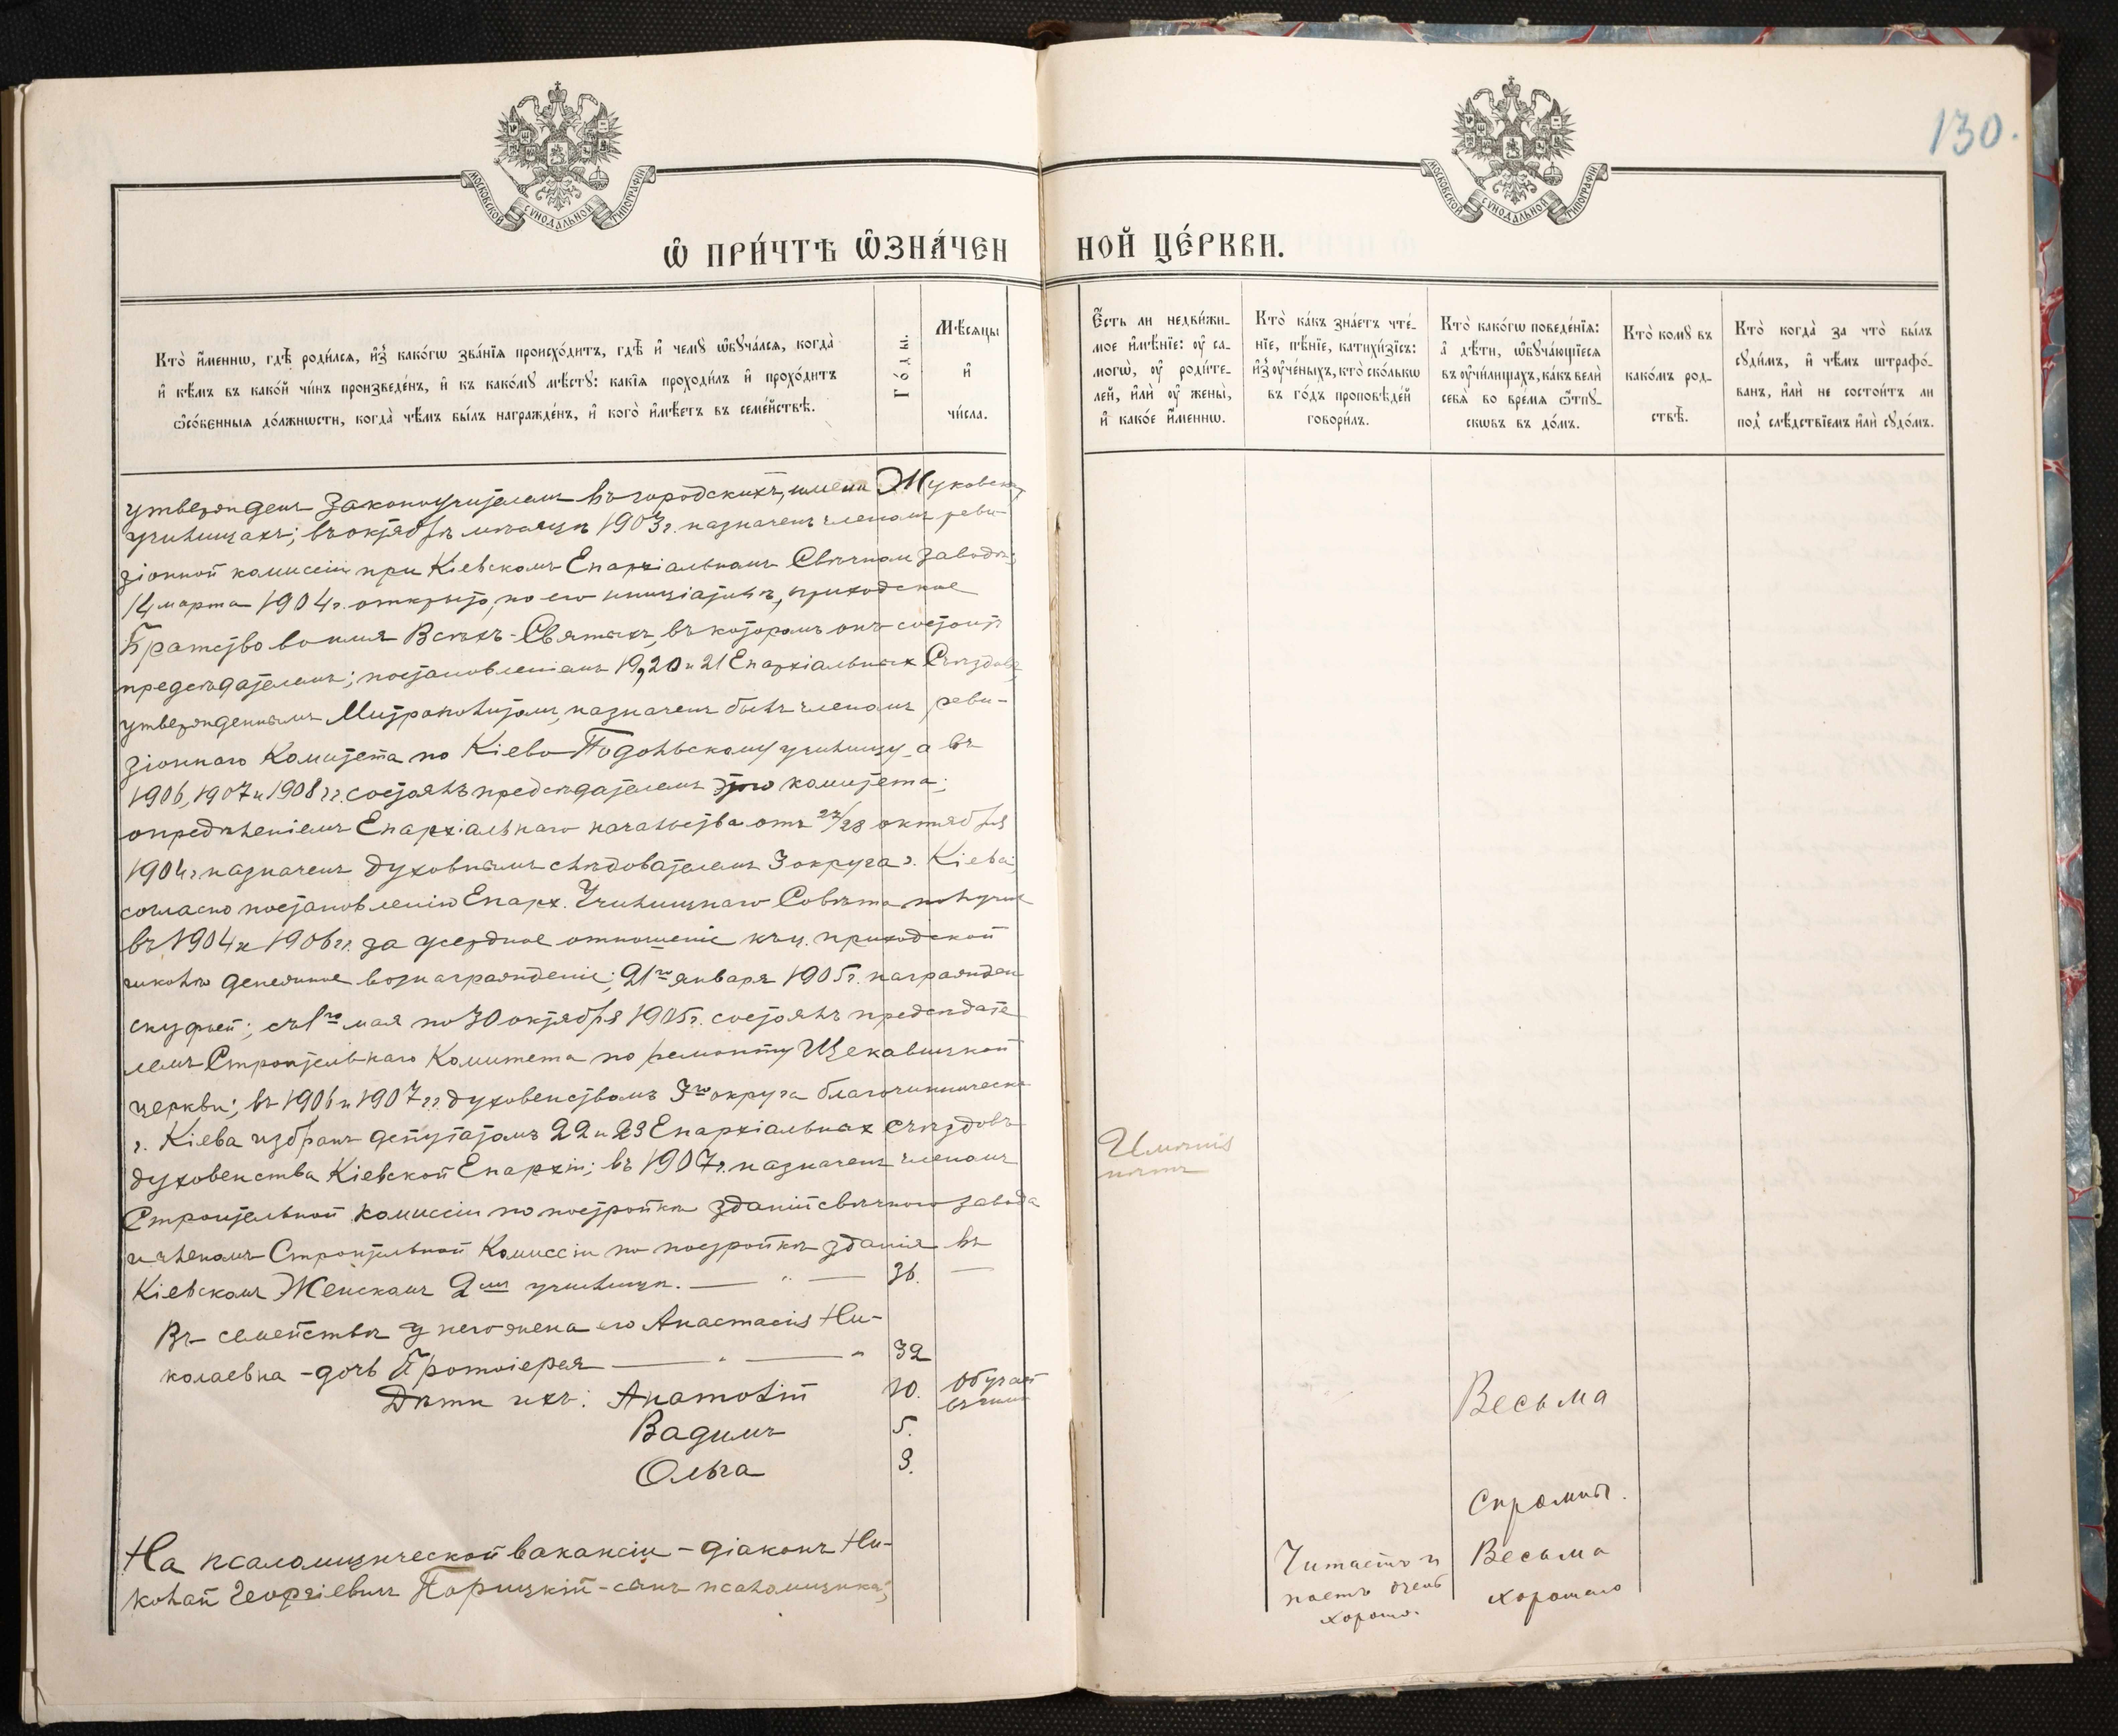 130.
МОСКОВСКОЙ СѴНОДАЛЬНОЙ ТИПОГРАФІИ
МОСКОВСКОЙ СѴНОДАЛЬНОЙ ТИПОГРАФІИ
Ѡ҆ ПРИ́ЧТѢ Ѡ҆ЗНА́ЧЕН НОЙ ЦЕ́РКВИ.
Кто̀ и҆́меннѡ, гдѣ̀ роди́лся, и҆з̾ како́гѡ зва́нїѧ происхо́дитъ, гдѣ̀ и҆ чемꙋ̀ ѡ҆бꙋча́лся, когда̀
и҆ кѣ́мъ въ како́й чи́нъ произведе́нъ, и҆ къ како́мꙋ мѣ́стꙋ: какі́ѧ проходи́лъ и҆ прохо́дитъ
ѻ҆со́бенныѧ до́лжнѡсти, когда̀ чѣ́мъ бы́лъ награжде́нъ, и҆ кого̀ и҆мѣ́етъ въ семе́йствѣ.
Го́ды.
Мѣ́сѧцы
и҆
чи́сла.
Є҆́сть ли недви́жи-
мое и҆мѣ́нїе: ᲂу҆ са-
могѡ̀, ᲂу҆ роди́те-
лей, и҆лѝ ᲂу҆ жены̀,
и҆ како́е и҆́меннѡ.
Кто̀ ка́къ зна́етъ чте́-
нїе, пѣ́нїе, катихи́зїсъ:
и҆з̾ ᲂу҆че́ныхъ, кто̀ ско́лькѡ
въ го́дъ проповѣ́дей
говори́лъ.
Кто̀ како́гѡ поведе́нїѧ:
а҆ дѣ́ти, ѡ҆бꙋча́ющїесѧ
въ ᲂу҆чи́лищахъ, ка́къ велѝ
себѧ̀ во вре́мѧ ѿпꙋ-
скѡвъ въ до́мъ.
Кто̀ комꙋ̀ въ
како́мъ род-
ствѣ̀.
Кто̀ когда̀ за что̀ бы́лъ
сꙋди́мъ, и҆ чѣ́мъ штрафо́-
ванъ, и҆лѝ не состои́тъ ли
под̾ слѣ́дствїемъ и҆лѝ сꙋдо́мъ.
утвержденъ законоучителемъ въ городскихъ, имени Жуковскаго
училищахъ; въ октябрѣ мѣсяцѣ 1903 г. назначенъ членомъ реви
зіонной комиссіи при Кіевскомъ Епархіальномъ Свѣчном заводѣ;
14 марта 1904 г. открыто, по его иниціативѣ, приходское
Братство во имя Всѣхъ-Святыхъ, въ которомъ онъ состоитъ
предсѣдателемъ; постановленіемъ 19, 20 и 21 Епархіальных Съѣздовъ,
утвержденнымъ Митрополитомъ, назначенъ былъ членомъ реви-
зіоннаго Комитета по Кіево-Подольскому училищу, а въ
1906, 1907 и 1908 гг. состоялъ предсѣдателемъ этого комитета;
опредѣленіемъ Епархіальнаго начальства отъ 22/28 октября
1904 г. назначенъ духовнымъ слѣдователемъ 3 округа г. Кіева;
согласно постановленію Епарх. Училищнаго Совѣта получилъ
въ 1904 и 1906 гг. за усердное отношеніе къ ц. приходской
школѣ денежное вознагражденіе; 21го января 1905 г. награжден
скуфьей; съ 1го мая по 30 октября 1905 г. состоялъ предсѣдате
лемъ Строительнаго Комитета по ремонту Щекавицкой
церкви; въ 1906 и 1907 гг. духовенствомъ 3го округа благочинническа
г. Кіева избранъ депутатомъ 22 и 23 Епархіальных съѣздовъ
духовенства Кіевской Епархіи; въ 1907 г. назначенъ членомъ
Строительной комиссіи по постройкѣ зданій свѣчного завода
и членомъ Строительной Комиссіи по постройкѣ зданія въ
Кіевскомъ Женскомъ 2мъ училищѣ. — " — 36. —
Имѣнія
нѣтъ
Въ семействѣ у него жена его Анастасія Ни-
колаевна - дочь Протоіерея — " — " 32
Дѣти ихъ: Анатолій 10. Обучает
Вадимъ 5.
Ольга 3.
Весьма
Скромны.
На псаломщической вакансіи - діаконъ Ни-
колай Георгіевичъ Порицкій - сынъ псаломщика;
Читаетъ и
поетъ очень
хорошо.
Весьма
хорошаго